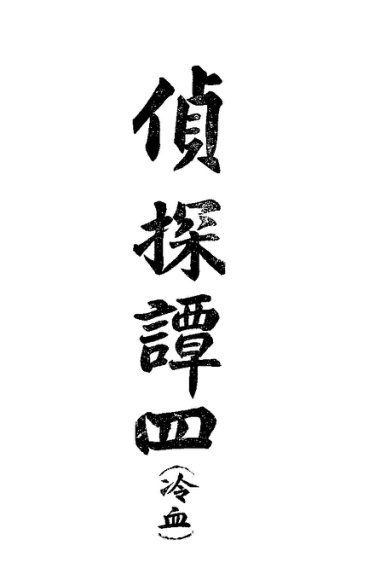 偵探譚四(冷血)